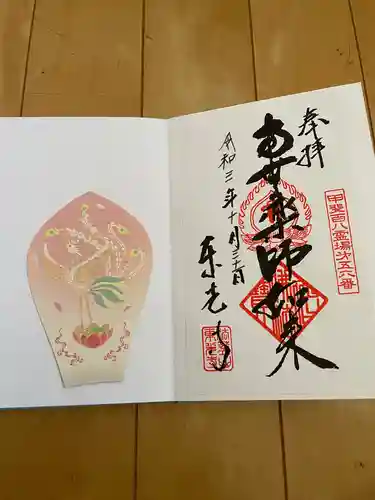 奉拝
南無薬師如来
甲斐百八霊場第五六番
令和三年十月三十日
東光寺